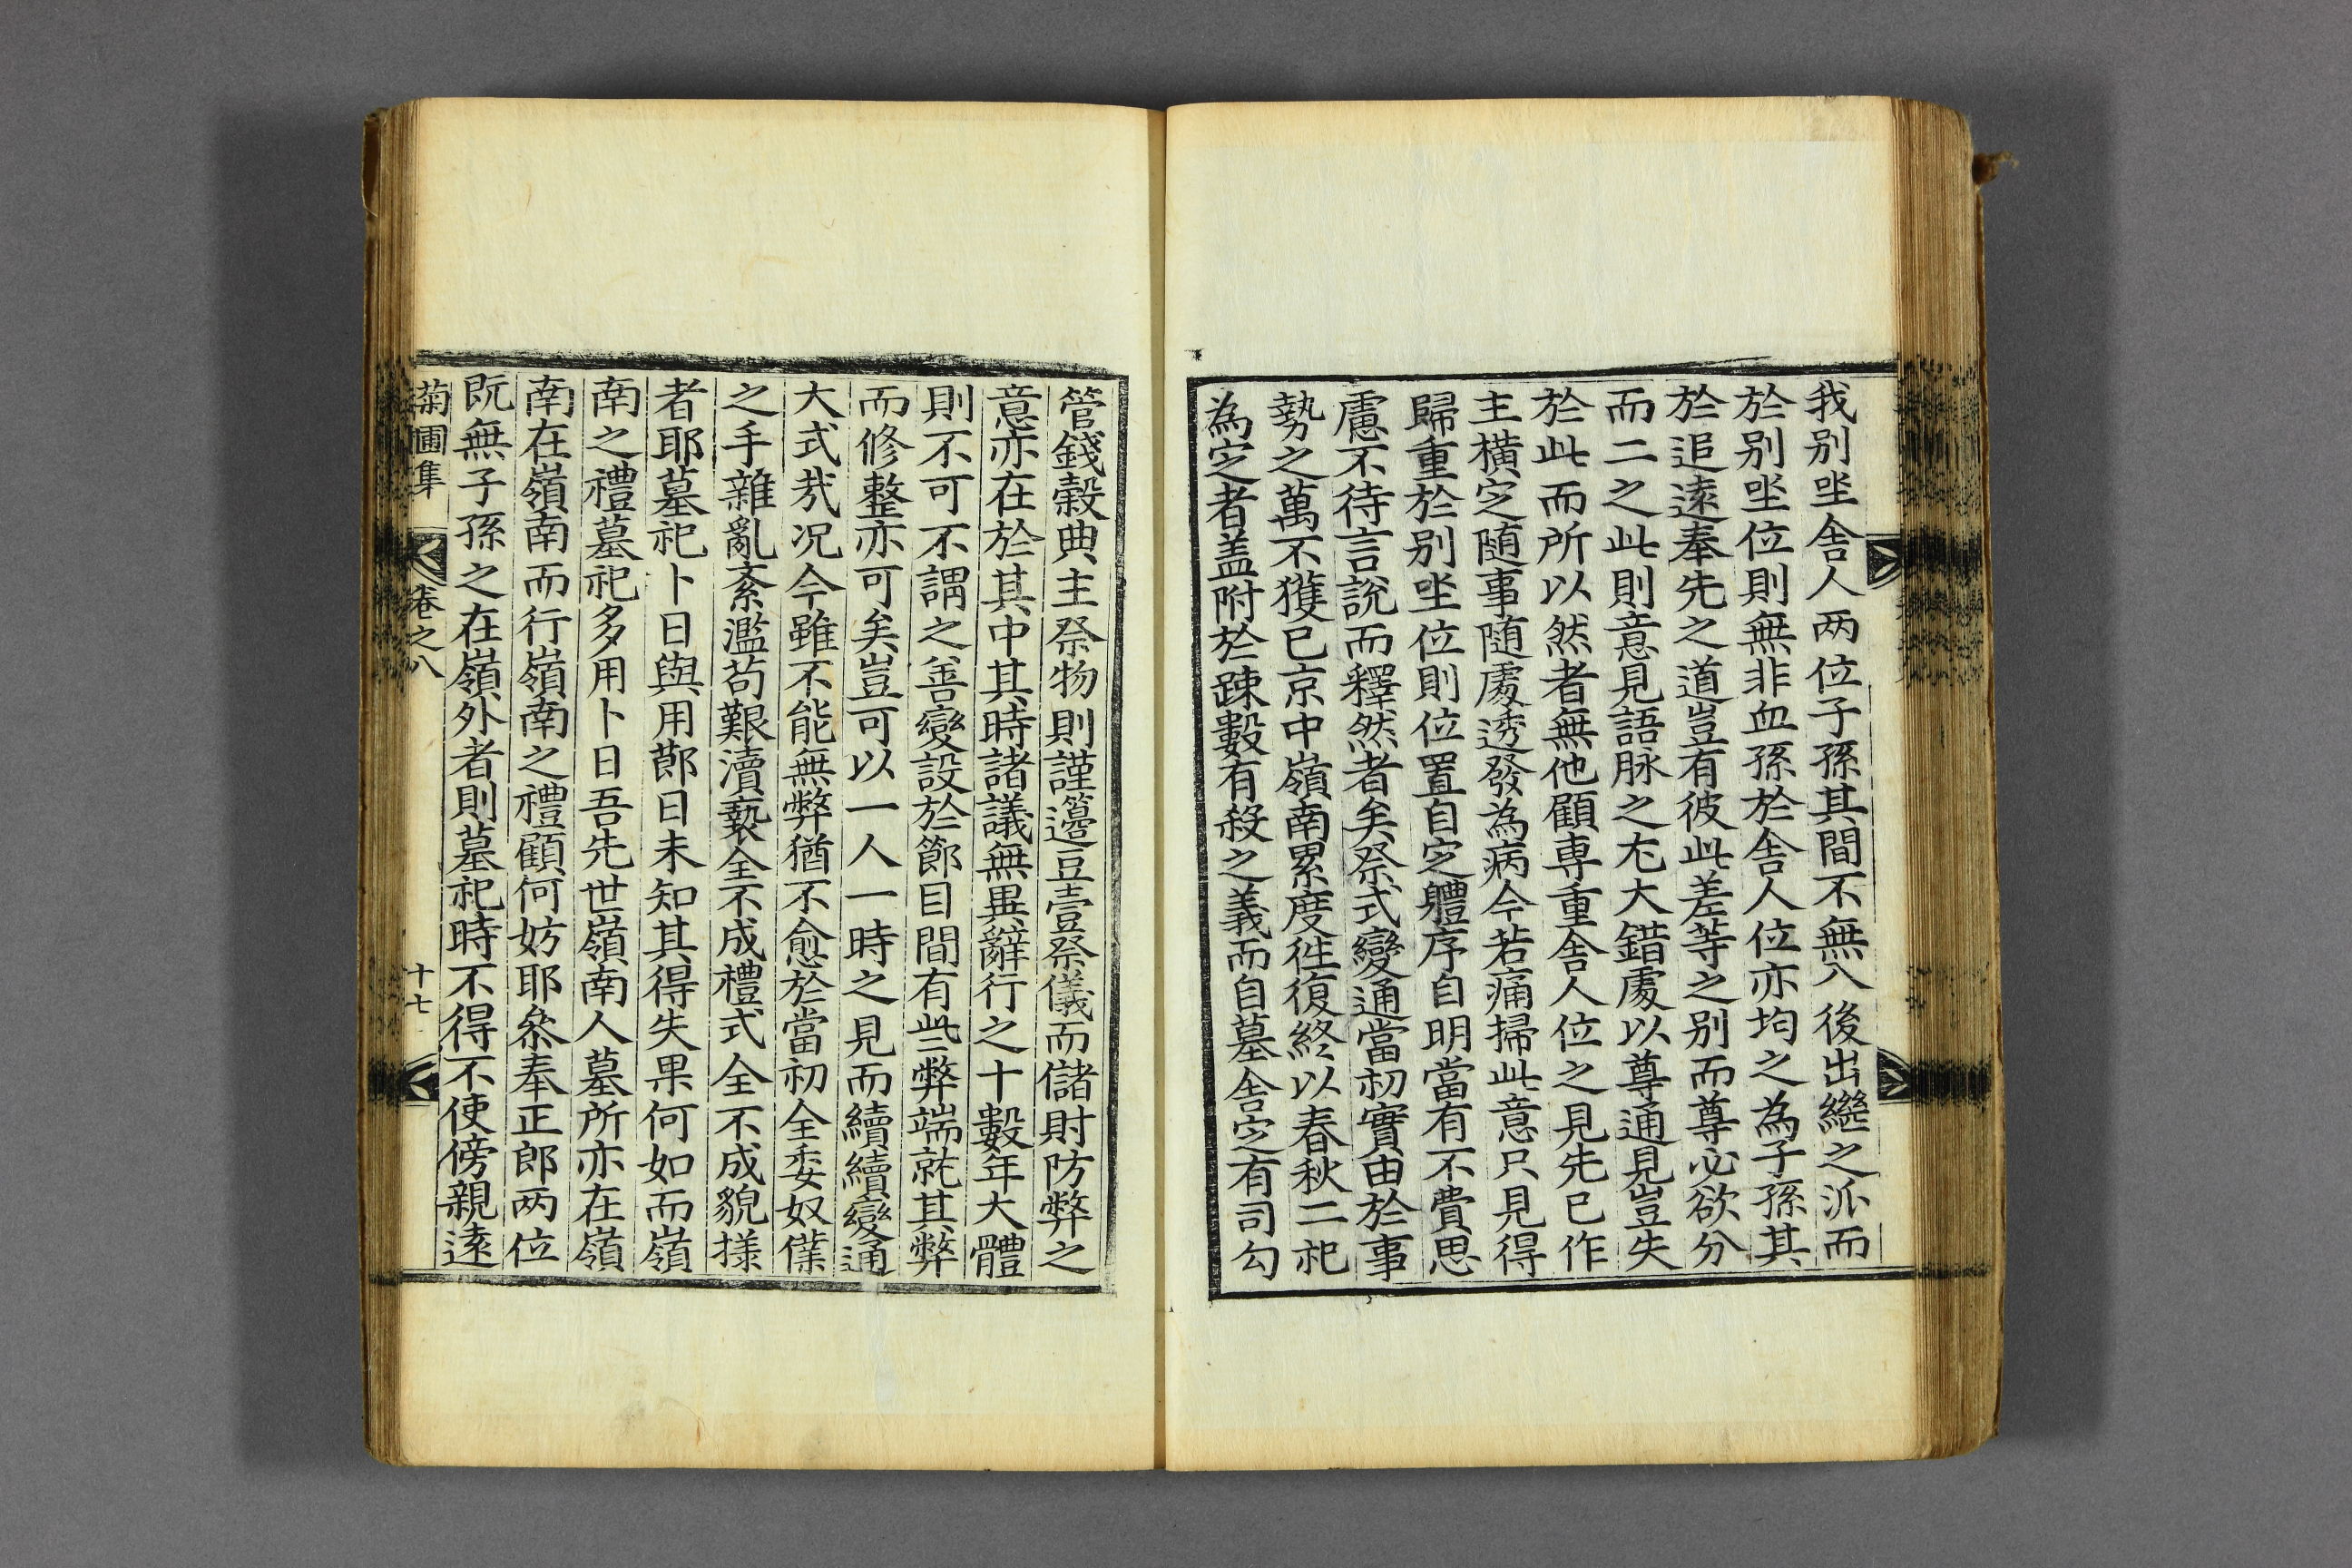 我別坐舍人两位子孫其間不無入後出繼之派而
於別坐位則無非血孫於舍人位亦均之為子孫其
於追遠奉先之道豈有彼此差等之別而尊必欲分
而二之此則意見語脉之尢大錯處以尊通見豈失
於此而所以然者無他顧專重舍人位之見先已作
主橫定隨事隨處透發為病今若痛掃此意只見得
歸重於別坐位則位置自定軆序自明當有不費思
慮不待言說而釋然者矣祭式變通當初實由於事
勢之萬不獲已京中嶺南累度徃復終以春秋二祀
為定者盖附於踈數有殺之義而自墓舍定有司勾
管錢榖典主祭物則謹籩豆壹祭儀而儲財防弊之
意亦在於其中其時諸議無異辭行之十數年大體
則不可不謂之善變設於節目間有些弊端就其弊
而修整亦可矣豈可以一人一時之見而續續變通
大式㢤况今雖不能無弊猶不愈於當初全委奴㒒
之手雜亂紊濫苟艱瀆褻全不成禮式全不成貌㨾
者耶墓祀卜日與用節日未知其得失果何如而嶺
南之禮墓祀多用卜日吾先世嶺南人墓所亦在嶺
南在嶺南而行嶺南之禮顧何妨耶叅奉正郎两位
旣無子孫之在嶺外者則墓祀時不得不使傍親遠
菊圃集 卷之八 十七